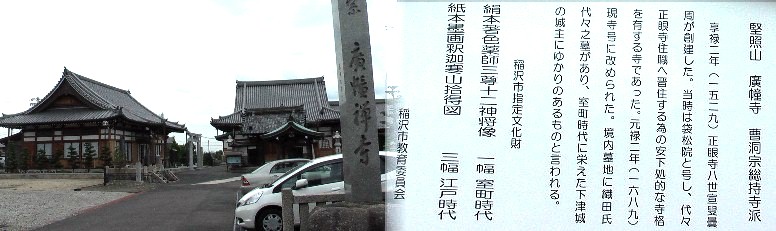 堅照山 廣幢寺 曹洞宗総持寺派
享禄二年(一五二九)正眼寺八世宣叟曇
周が創建した。当時は袋松院と号し、代々
正眼寺住職へ晋住する為の安下処的な寺格
を有する寺であった。元禄二年(一六八九)
現寺号に改められた。境内墓地に織田氏
代々之墓があり、室町時代に栄えた下津城
の城主にゆかりのあるものと言われる。
稲沢市指定文化財
絹本著色薬師三尊十二神将像 一幅 室町時代
紙本墨画釈迦寒山拾得図 三幅 江戸時代
稲沢市教育委員会
廣幢禅寺